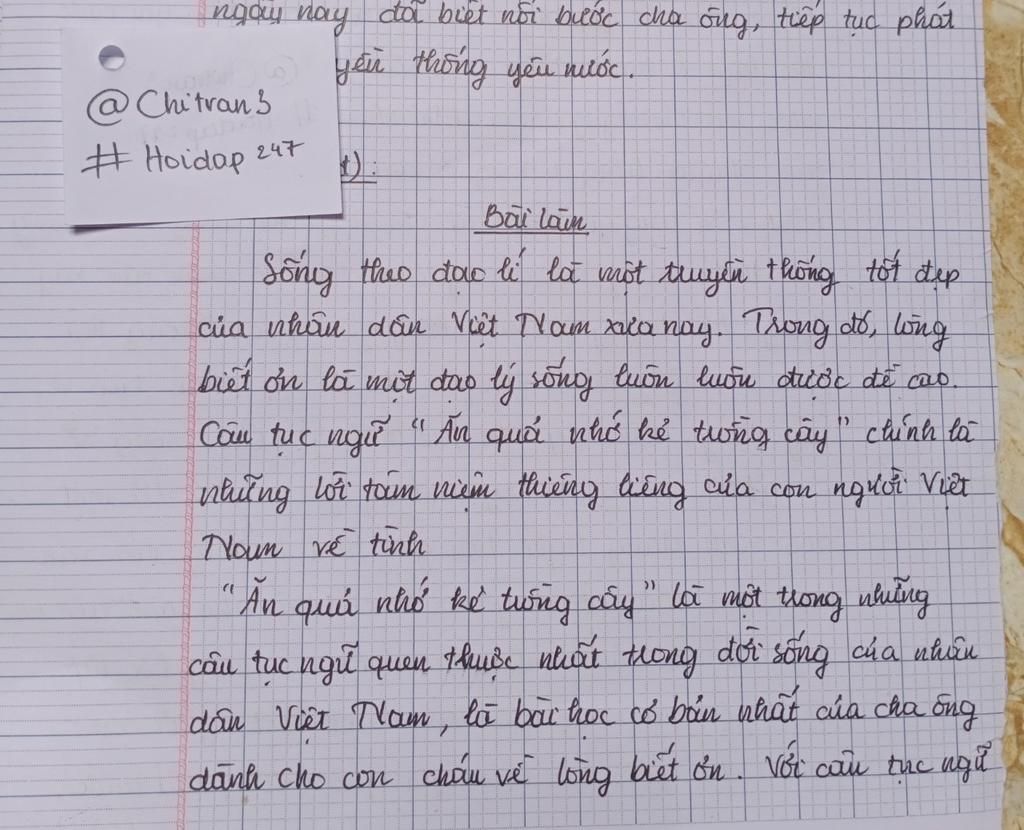 ngày nay đã biết nối bước cha ông, tiếp tục phát
yền thống yêu nước.
@Chitran3
# Hoidap 247
t):
Bài làm
Sống theo đạo lí là một truyền thống tốt đẹp
của nhân dân Việt Nam xưa nay. Trong đó, lòng
biết ơn là một đạo lý sống luôn luôn được đề cao.
Câu tục ngữ "Ăn quả nhớ kẻ trồng cây" chính là
những lời tâm niệm thiêng liêng của con người Việt
Nam về tình
"Ăn quả nhớ kẻ trồng cây" là một trong những
câu tục ngữ quen thuộc nhất trong đời sống của nhân
dân Việt Nam, là bài học cơ bản nhất của cha ông
dành cho con cháu về lòng biết ơn. Với câu tục ngữ